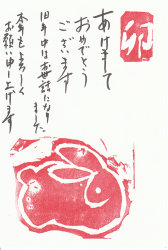 卯
あけまして
おめでとう
ございます
旧年中はお世話になり
ました。
本年もよろしく
お願い申し上げます